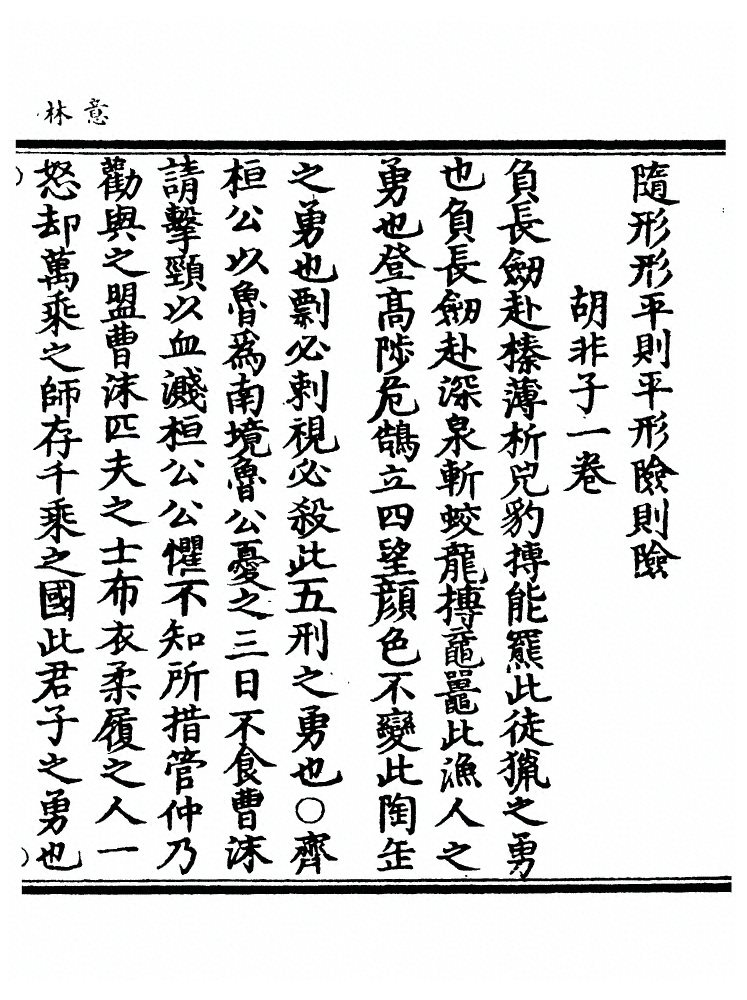 意林
隨形形平則平形險則險
胡非子一卷
負長劒赴榛薄析兕豹搏能羆此徒獵之勇
也負長劒赴深泉斬蛟龍搏黿鼉此漁人之
勇也登高陟危鵠立四望顔色不變此陶缶
之勇也剽必刺視必殺此五刑之勇也○齊
桓公以魯爲南境魯公憂之三日不食曹沫
請擊頸以血濺桓公公懼不知所措管仲乃
勸與之盟曹沫匹夫之士布衣柔履之人一
怒却萬乘之師存千乘之國此君子之勇也